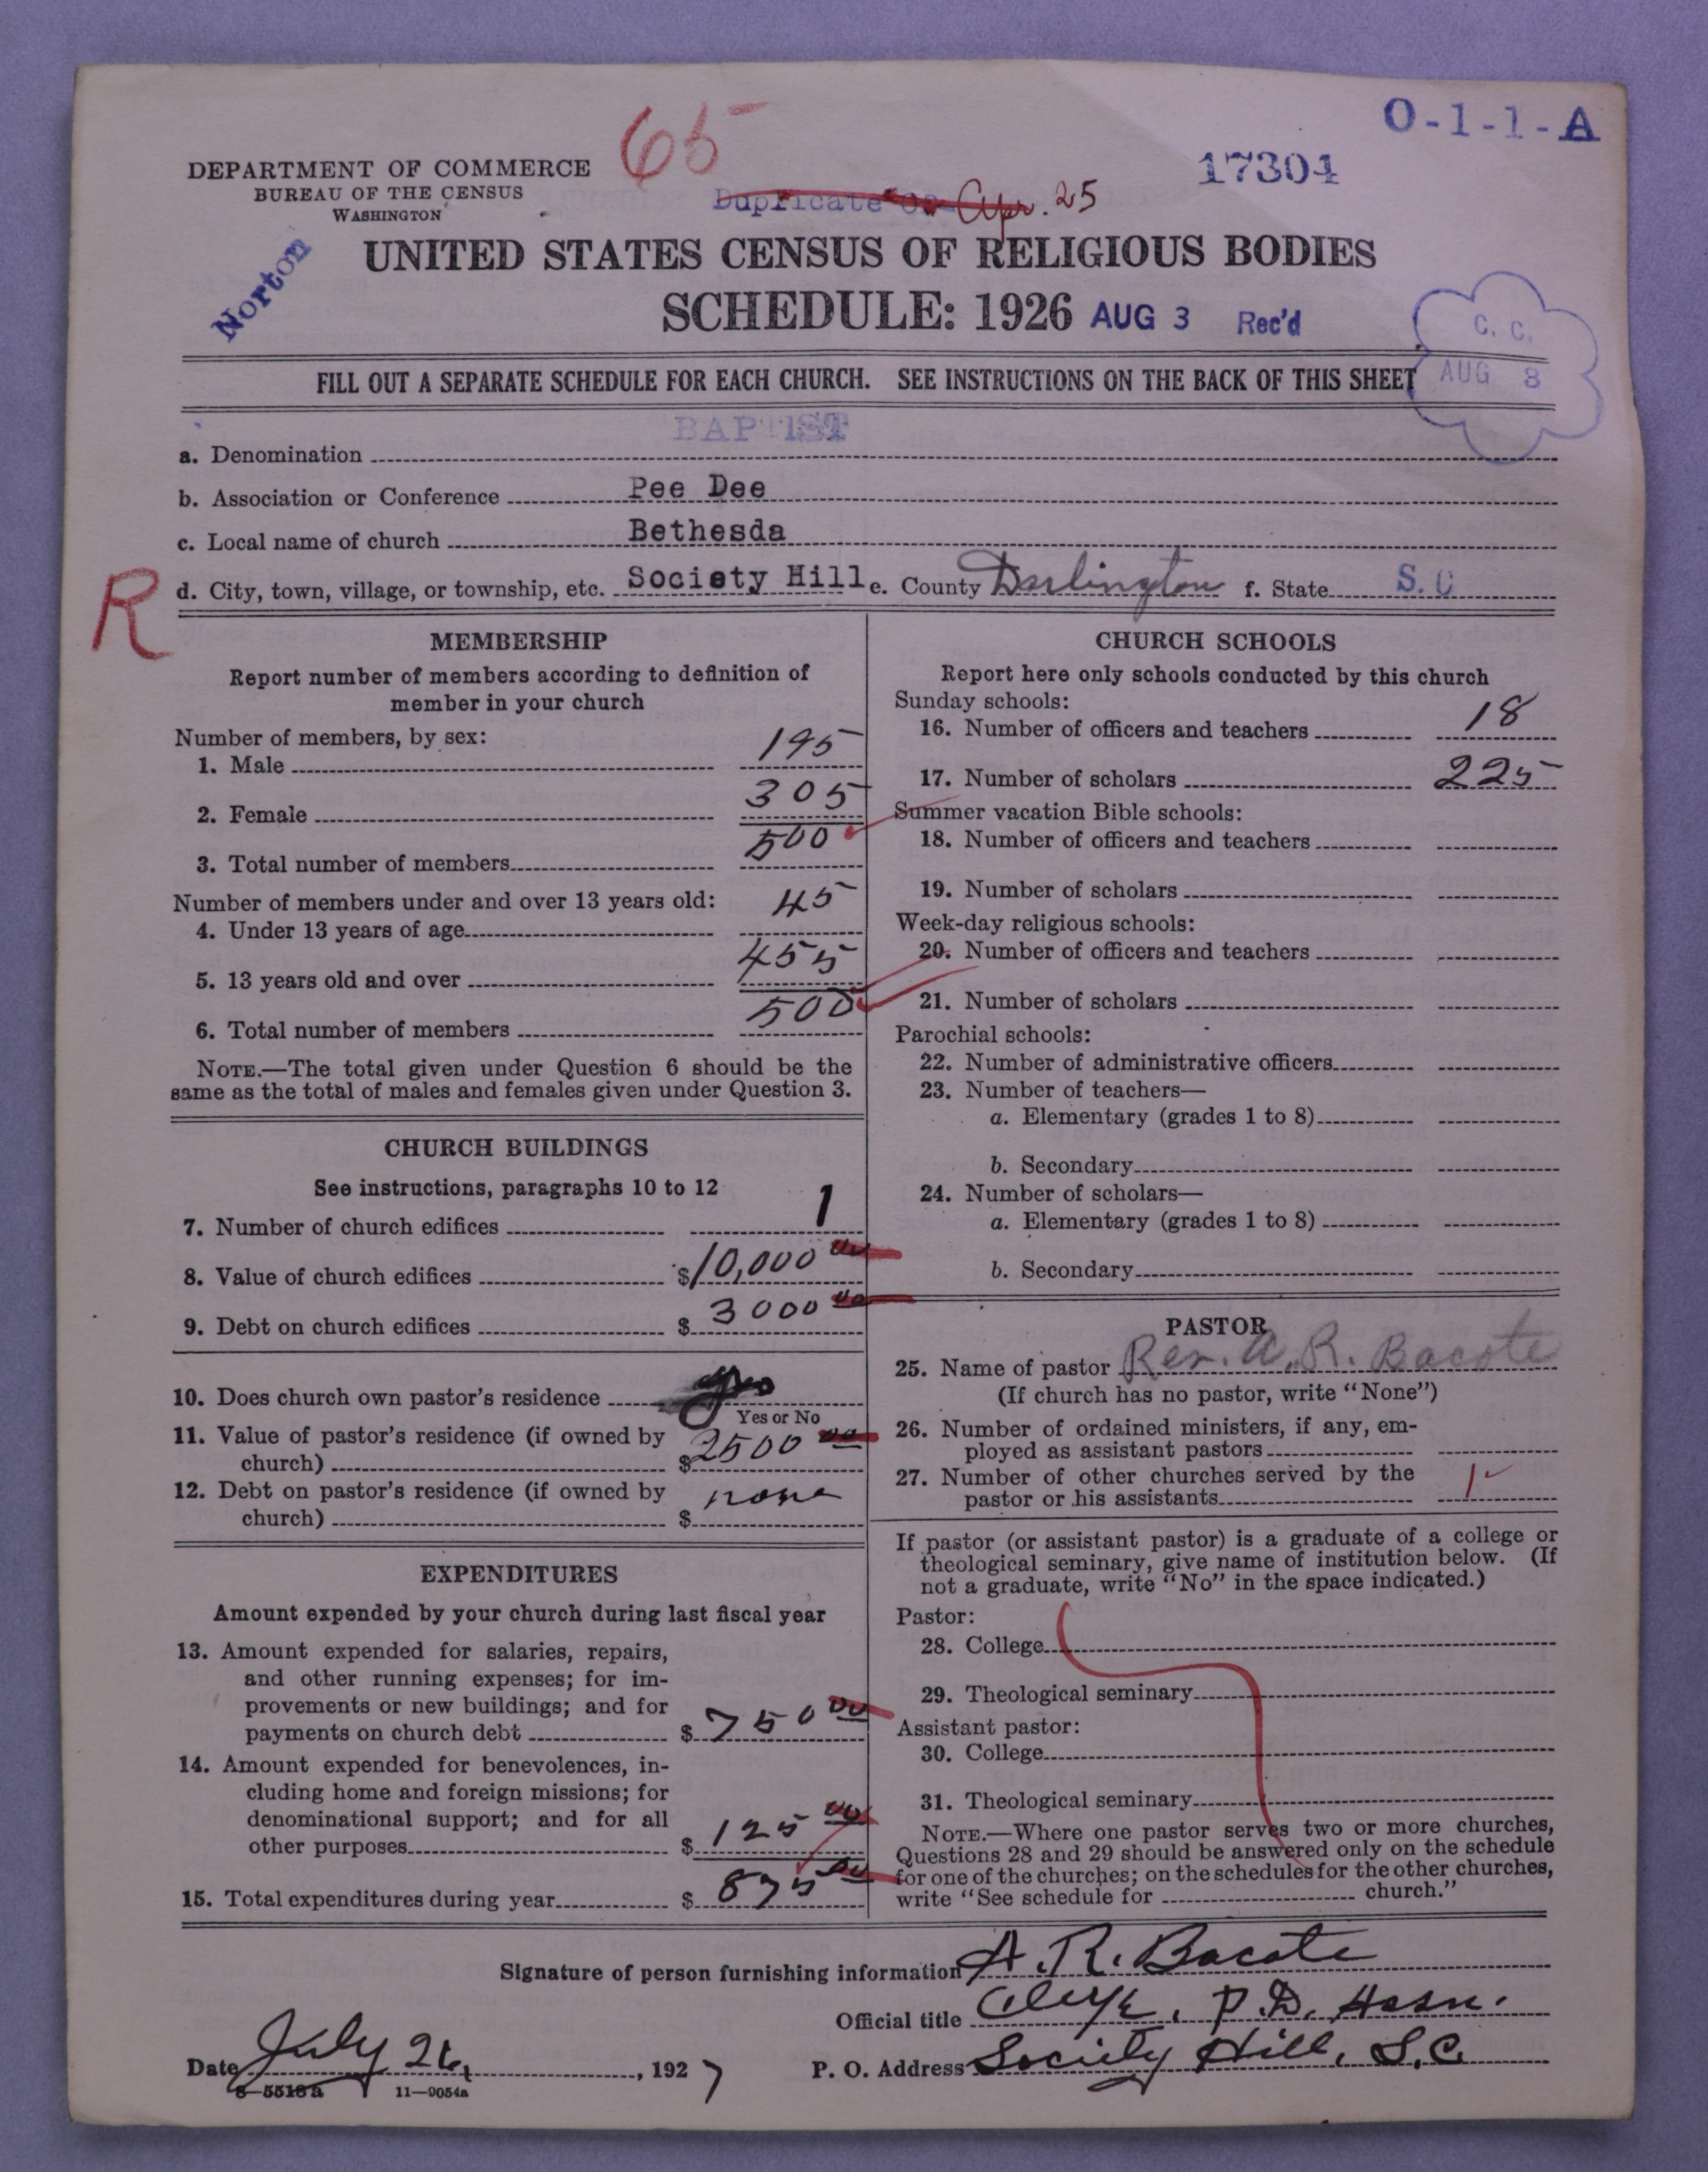 65
O-1-1-A
DEPARTMENT OF COMMERCE
BUREAU OF THE CENSUS
WASHINGTON
17304
Duplicate Apr. 25
Norton
UNITED STATES CENSUS OF RELIGIOUS BODIES
SCHEDULE: 1926 AUG 3 Rec'd
C. C.
AUG 3
FILL OUT A SEPARATE SCHEDULE FOR EACH CHURCH. SEE INSTRUCTIONS ON THE BACK OF THIS SHEET
BAPTIST
a. Denomination
b. Association or Conference Pee Dee
c. Local name of church Bethesda
R
d. City, town, village, or township, etc. Society Hill e. County Darlington f. State S.C
MEMBERSHIP
Report number of members according to definition of
member in your church
Number of members, by sex:
1. Male 195
2. Female 305
3. Total number of members 500
Number of members under and over 13 years old:
4. Under 13 years of age 45
5. 13 years old and over 455
6. Total number of members 500
NOTE.—The total given under Question 6 should be the
same as the total of males and females given under Question 3.
CHURCH BUILDINGS
See instructions, paragraphs 10 to 12
7. Number of church edifices 1
8. Value of church edifices $10,000 00
9. Debt on church edifices $ 3000 00
10. Does church own pastor's residence yes
Yes or No
11. Value of pastor's residence (if owned by
church) $2500 00
12. Debt on pastor's residence (if owned by
church) $ none
EXPENDITURES
Amount expended by your church during last fiscal year
13. Amount expended for salaries, repairs,
and other running expenses; for im-
provements or new buildings; and for
payments on church debt $ 750 00
14. Amount expended for benevolences, in-
cluding home and foreign missions; for
denominational support; and for all
other purposes $ 125 00
15. Total expenditures during year $ 875 00
CHURCH SCHOOLS
Report here only schools conducted by this church
Sunday schools:
16. Number of officers and teachers 18
17. Number of scholars 225
Summer vacation Bible schools:
18. Number of officers and teachers
19. Number of scholars
Week-day religious schools:
20. Number of officers and teachers
21. Number of scholars
Parochial schools:
22. Number of administrative officers
23. Number of teachers—
a. Elementary (grades 1 to 8)
b. Secondary
24. Number of scholars—
a. Elementary (grades 1 to 8)
b. Secondary
PASTOR
25. Name of pastor Rev. A. R. Bacote
(If church has no pastor, write "None")
26. Number of ordained ministers, if any, em-
ployed as assistant pastors
27. Number of other churches served by the
pastor or his assistants 1
If pastor (or assistant pastor) is a graduate of a college or
theological seminary, give name of institution below. (If
not a graduate, write "No" in the space indicated.)
Pastor:
28. College
29. Theological seminary
Assistant pastor:
30. College
31. Theological seminary
NOTE.—Where one pastor serves two or more churches,
Questions 28 and 29 should be answered only on the schedule
for one of the churches; on the schedules for the other churches,
write "See schedule for church."
Signature of person furnishing information A. R. Bacote
Official title Clerk, P.D. Assn.
Date July 26, 1927 P. O. Address Society Hill, S.C.
8—5518a 11—9054a